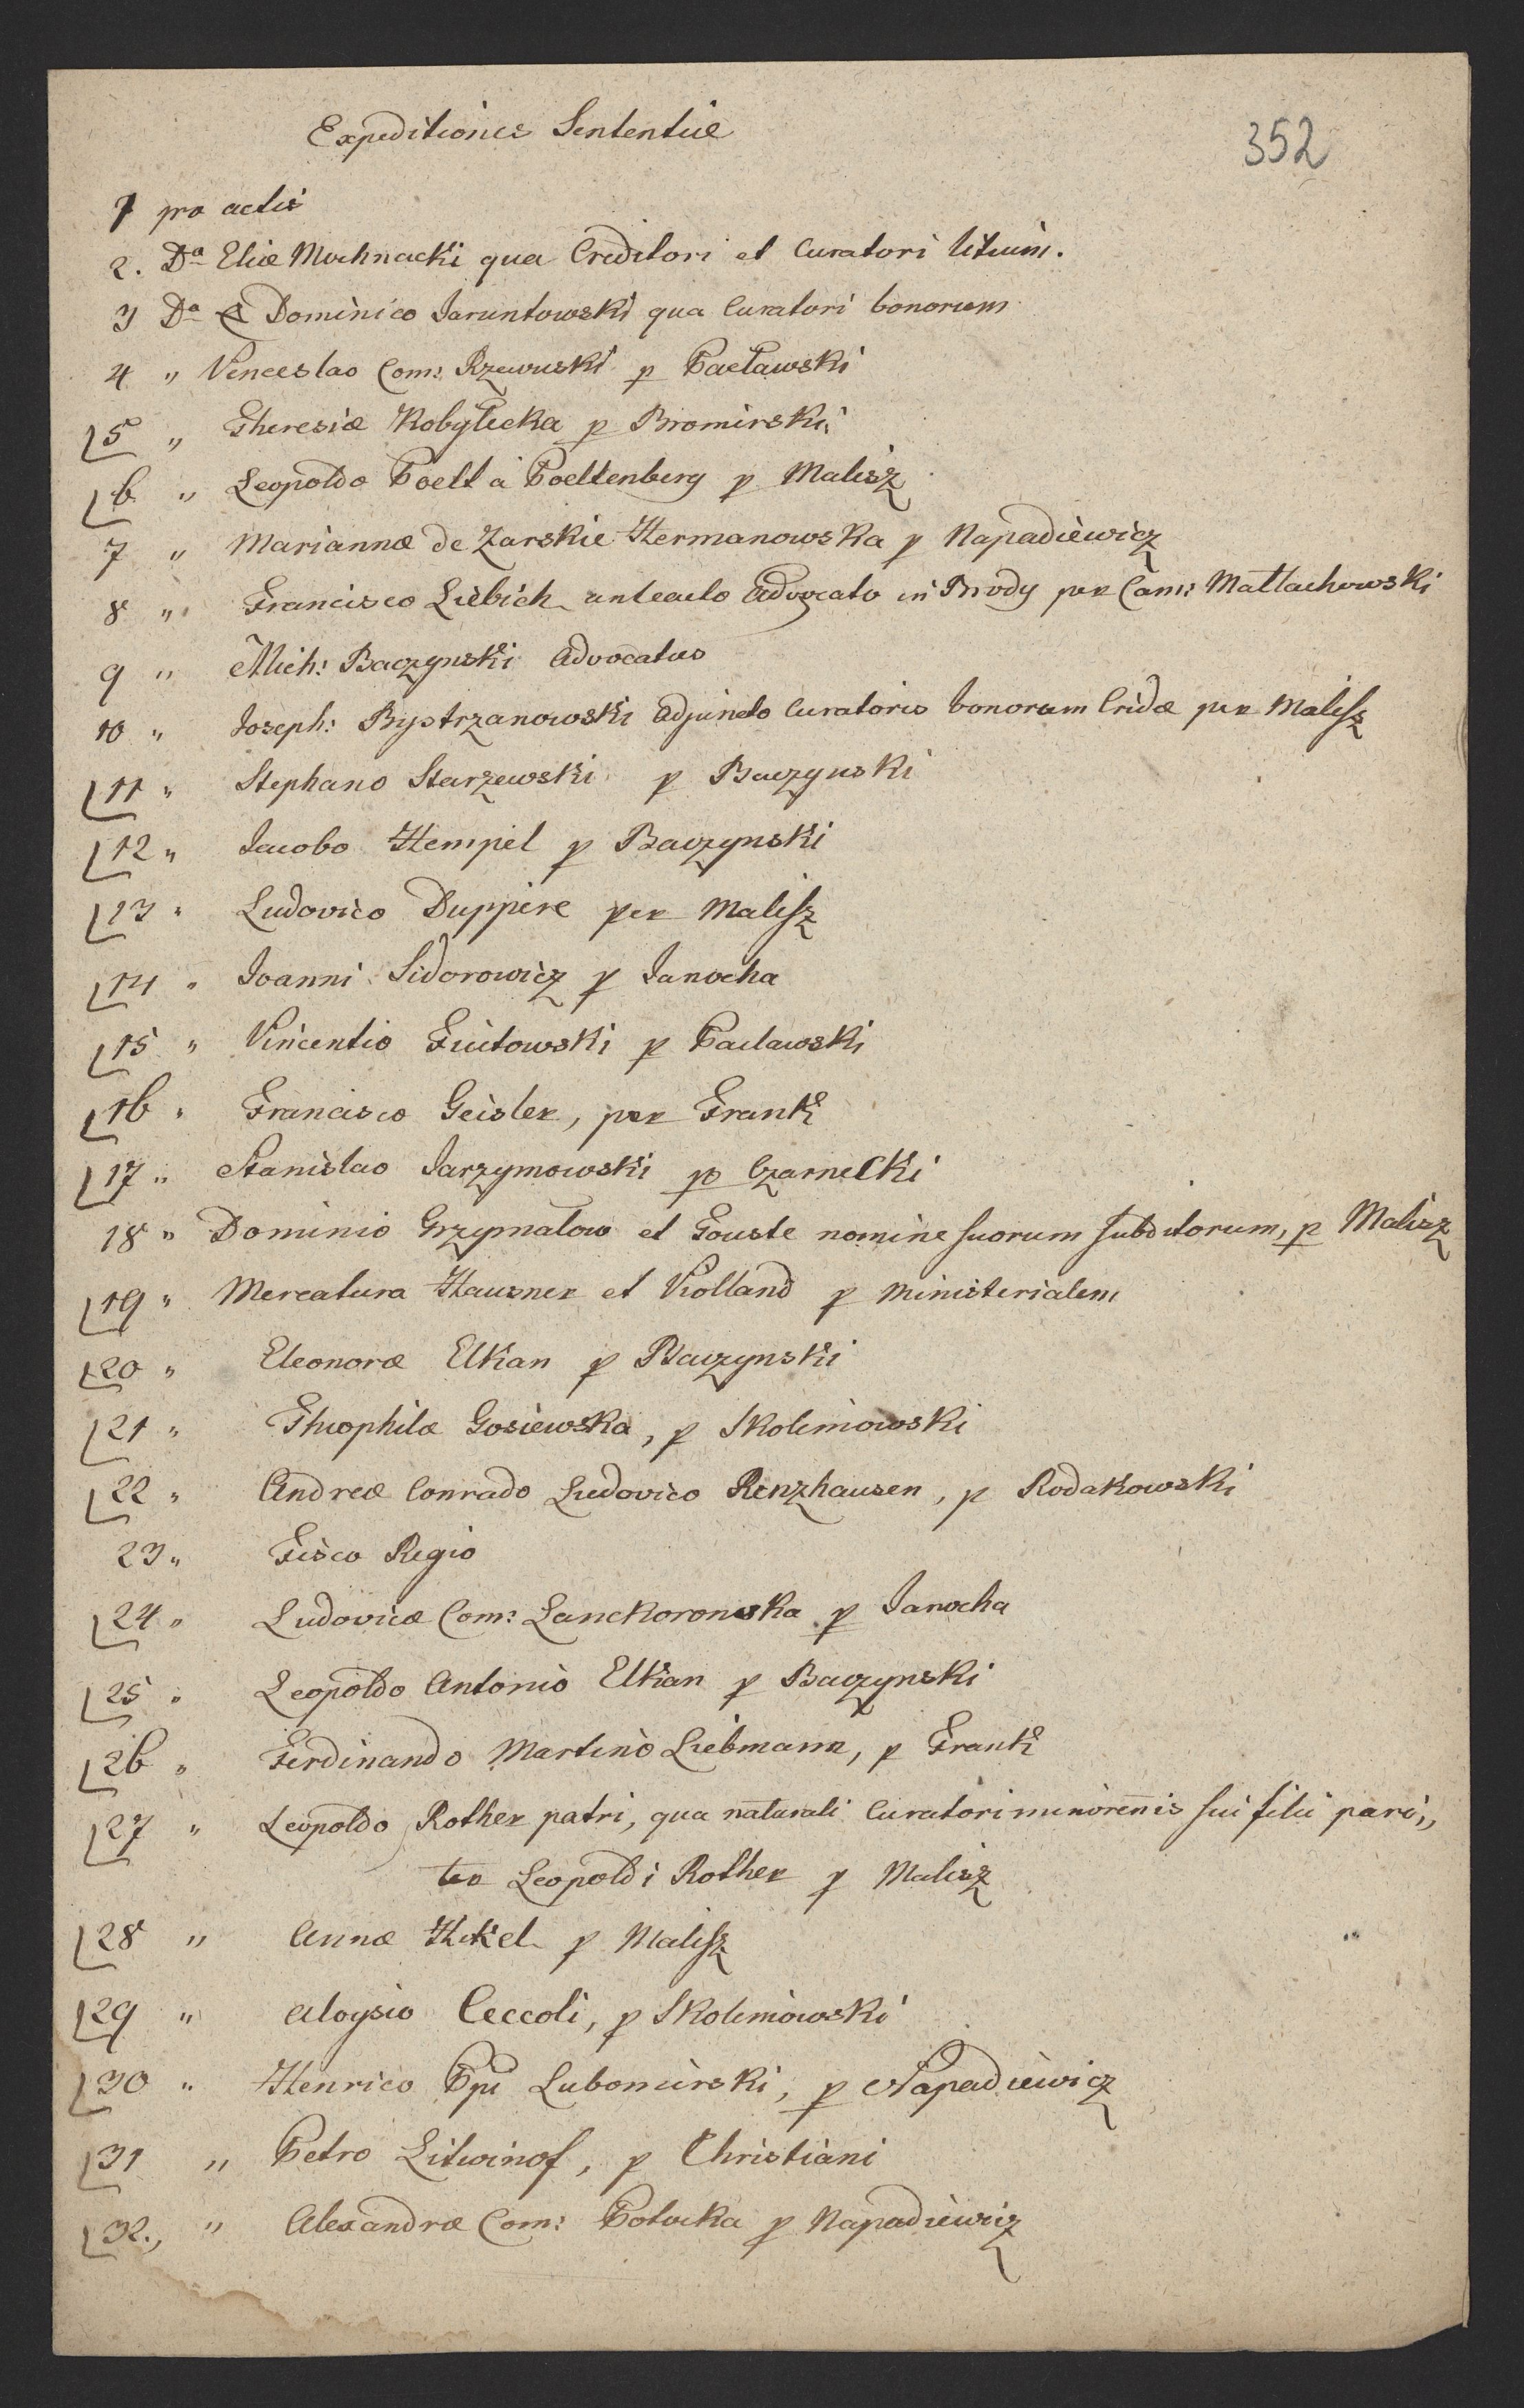 Expeditiones Sententiæ
352
1 pro actis
2. Da Eliæ Mochnacki qua Creditori et Curatori litium.
3 Da Dominico Jaruntowski qua Curatori bonorum
4 " Venceslao Com: Rzewuski p Pacławski
5 " Theresiæ Kobyłecka p Bromirski
6 " Leopoldo Poelt à Poeltenberg p Malisz
7 " Mariannæ de Zarskie Hermanowska p Napadiewicz
8 " Francisco Liebich anteacto Advocato in Brody per Cam: Matlachowski
9 " Mich: Baczynski Advocatus
10 " Joseph: Bystrzanowski Adjuncto Curatoris bonorum Cridæ per Malisz
11 " Stephano Starzewski p Baczynski
12 " Jacobo Hempel p Baczynski
13 " Ludovico Duppire per Malisz
14 " Joanni Sidorowicz p Janocha
15 " Vincentio Gutowski p Paclawski
16 " Francisco Geisler, per Frank
17 " Stanislao Jarzymowski p Czarnecki
18 " Dominio Grzymałow et Touste nomine suorum subditorum, p Malisz
19 " Mercatura Hausner et Violland p Ministerialem
20 " Eleonoræ Elkan p Baczynski
21 " Theophilæ Gosiewska, p Skolimowski
22 " Andreæ Conrado Ludovico Renzhausen, p Rodakowski
23 " Fisco Regio
24 " Ludovicæ Com: Lanckoronska p Janocha
25 " Leopoldo Antonio Elkan p Baczynski
26 " Ferdinando Martino Liebmann, p Frank
27 " Leopoldo Rother patri, qua naturali Curatori minorennis sui filii pari,,
ter Leopoldi Rother p Malisz
28 " Annæ Hekel p Malisz
29 " Aloysio Ceccoli, p Skolimowski
30 " Henrico Ppi Lubomirski, p Napadiewicz
31 " Petro Litwinof, p Christiani
32., " Alexandræ Com: Potocka p Napadiewicz